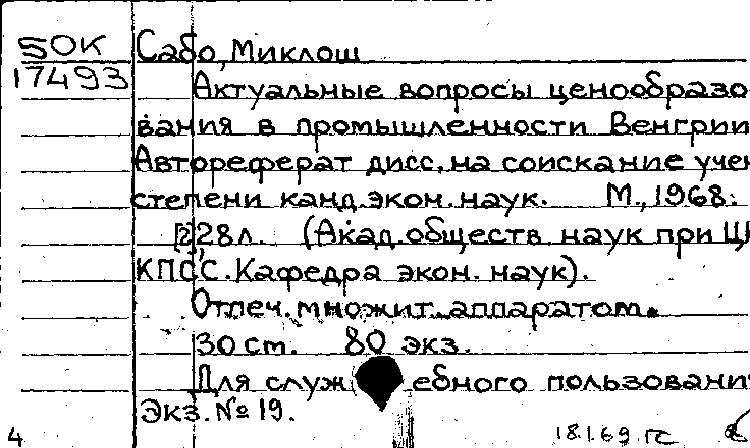 5OK Сабо, Миклош
17493 Актуальные вопросы ценообразо
вания в промышленности Венгрии
Автореферат дисс. на соискание учен
степени канд. экон. наук. М., 1968.
[2], 28 л. (Акад. обществ. наук при Ц
КПСС. Кафедра экон. наук).
Отпеч. множит. аппаратом.
30 ст. 80 экз.
Для служебного пользовани
Экз. № 19.
4 18.1.69 гс